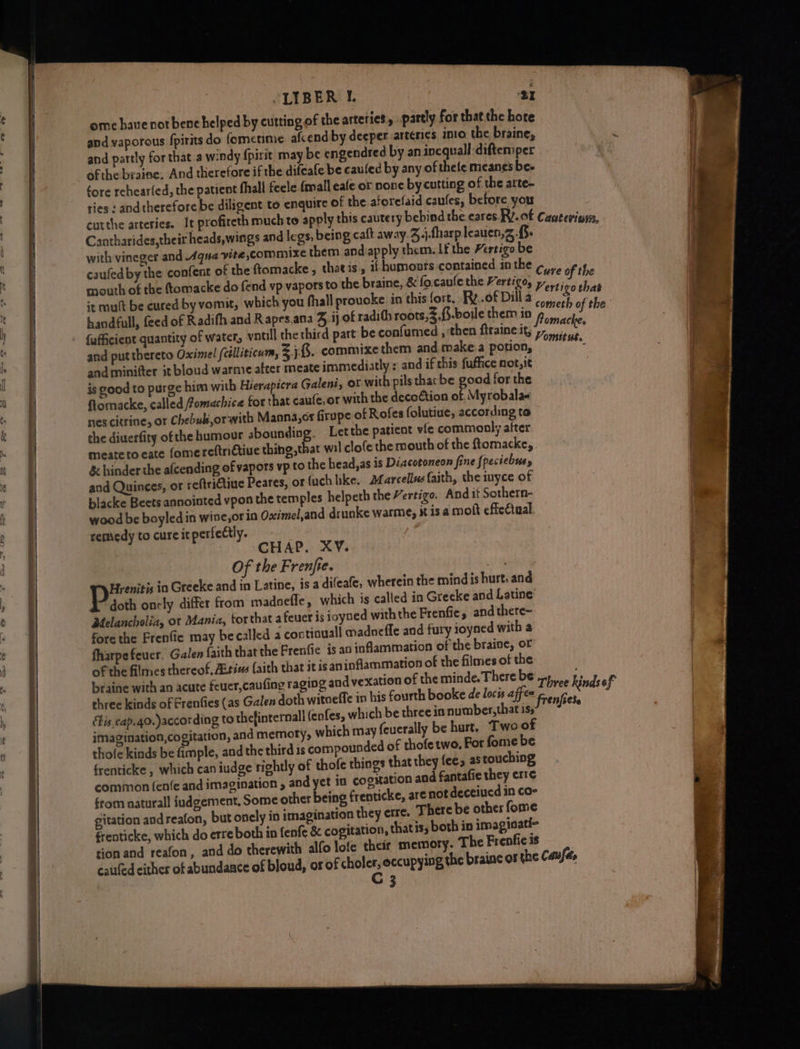 LIBER I. 21
ome haue not bene helped by cutting of the arteries, partly for that the hote
and vaporous ſpirits do ſometime aſcend by deeper arteries into the braine,
and partly for that a windy ſpirit may be engendred by an inequall diſtemper
of the braine. And therefore if the diſeaſe be cauſed by any of theſe meanes be-
fore rehearſed, the patient ſhall feele ſmall eaſe or none by cutting of the arte-
ries: and therefore be diligent to enquire of the aforeſaid cauſes, before you
cut the arteries. It profiteth much to apply this cautery behind the eares ℞. of
Cauterium.
Cantharides, their heads, wings and legs, being caſt away. ʒ.j. ſharp leauen, ʒ.ß.
with vineger and Aqua vitæ, commixe them and apply them. If the Vertigo be
cauſed by the conſent of the ſtomacke, that is, if humours contained in the
Cure of the
mouth of the ſtomacke do ſend vp vapors to the braine, & ſo cauſe the Vertigo,
Vertigo that
it muſt be cured by vomit, which you ſhall prouoke in this ſort. ℞. of Dill a
cometh of the
handfull, ſeed of Radiſh and Rapes. ana ʒ. ij of radiſh roots, ʒ.ß. boile them in
ſtomacke.
ſufficient quantity of water, vntill the third part be conſumed, then ſtraine it,
Vomitus.
and put thereto Oximel ſcilliticum, ʒ j ß. commixe them and make a potion,
and miniſter it bloud warme after meate immediatly: and if this ſuffice not, it
is good to purge him with Hierapicra Galeni, or with pils that be good for the
ſtomacke, called ſtomachicæ for that cauſe, or with the decoction of Myrobala-
nes citrine, or Chebuls, or with Manna, or ſirupe of Roſes ſolutiue, according to
the diuerſity of the humour abounding. Let the patient vſe commonly after
meate to eate ſome reſtrictiue thing, that wil cloſe the mouth of the ſtomacke,
& hinder the aſcending of vapors vp to the head, as is Diacotoneon ſine ſpeciebus,
and Quinces, or reſtrictiue Peares, or ſuch like. Marcellus ſaith, the iuyce of
blacke Beets annointed vpon the temples helpeth the Vertigo. And it Sothern-
wood be boyled in wine, or in Oximel, and drunke warme, it is a moſt effectual
remedy to cure it perfectly.
CHAP. XV.
Of the Frenſie.
PHrenitis in Greeke and in Latine, is a diſeaſe, wherein the mind is hurt. and
doth onely differ from madneſſe, which is called in Greeke and Latine
Melancholia, or Mania, for that a feuer is ioyned with the Frenſie, and there-
fore the Frenſie may be called a continuall madneſſe and fury ioyned with a
ſharpe feuer. Galen ſaith that the Frenſie is an inflammation of the braine, or
of the filmes thereof. Ætius ſaith that it is an inflammation of the filmes of the
braine with an acute feuer, cauſing raging and vexation of the minde. There be
Three kinds of
three kinds of Frenſies (as Galen doth witneſſe in his fourth booke de locis affe-
frenſies.
ctis cap. 40.) according to the internall ſenſes, which be three in number, that is,
imagination, cogitation, and memory, which may ſeuerally be hurt. Two of
thoſe kinds be ſimple, and the third is compounded of thoſe two. For ſome be
frenticke, which can iudge rightly of thoſe things that they ſee, as touching
common ſenſe and imagination, and yet in cogitation and fantaſie they erre
from naturall iudgement. Some other being frenticke, are not deceiued in co-
gitation and reaſon, but onely in imagination they erre. There be other ſome
frenticke, which do erre both in ſenſe & cogitation, that is, both in imaginati-
on and reaſon, and do therewith alſo loſe their memory. The Frenſie is
cauſed either of abundance of bloud, or of choler, occupying the braine or the
Cauſes
C 3